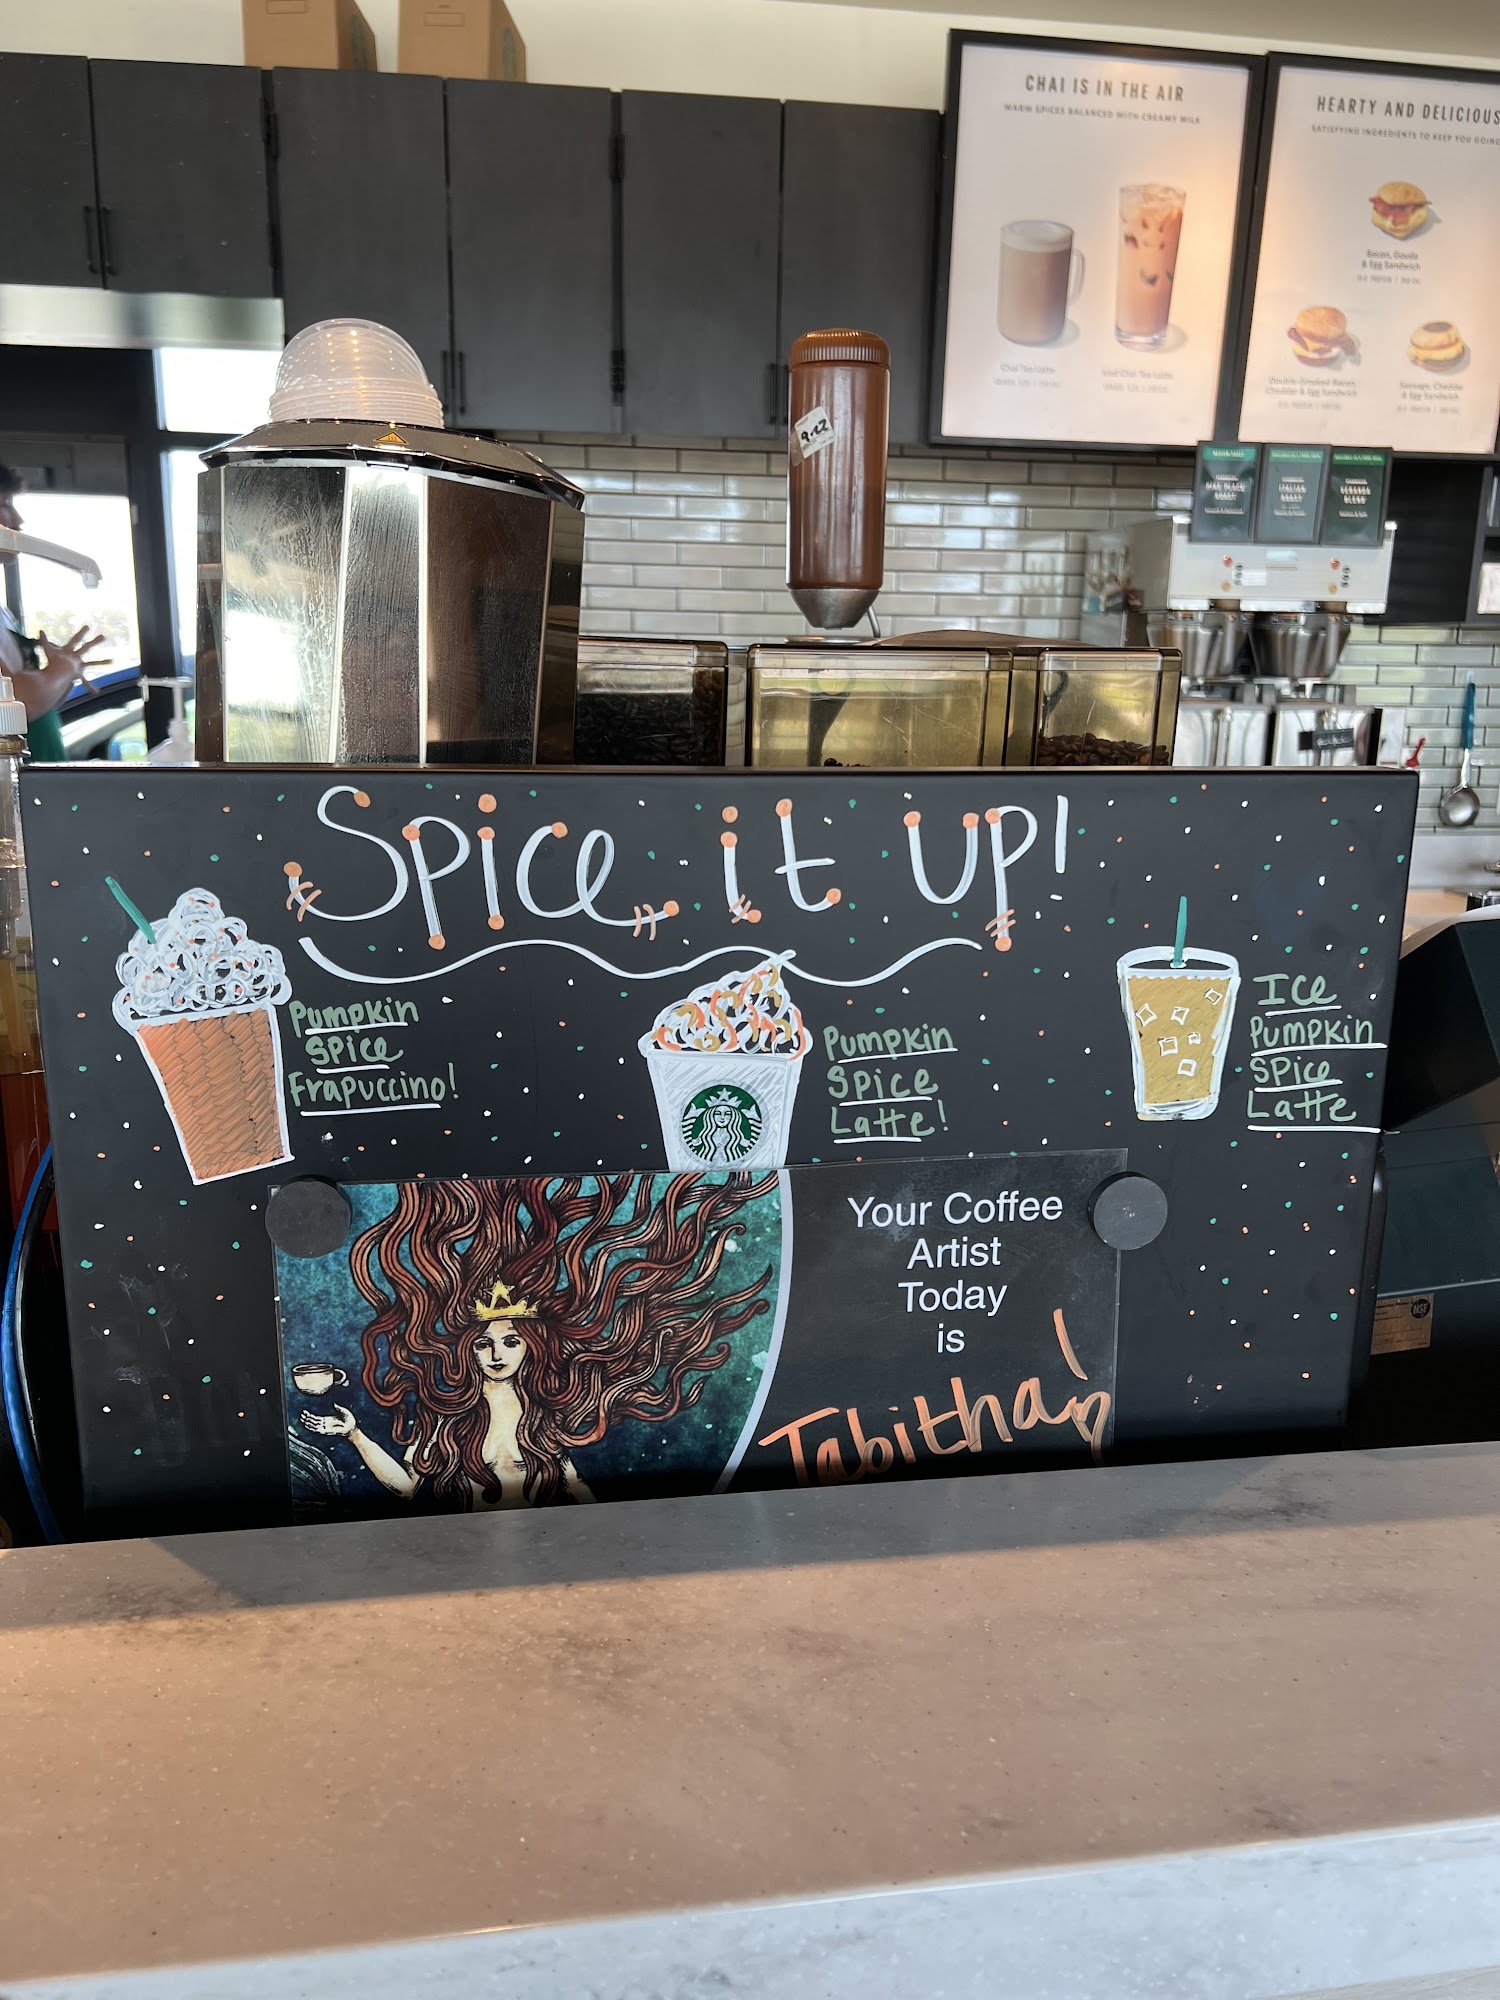 CHAI IS IN THE AIR
WARM SPICES BALANCED WITH CREAMY MILK
Chai Tea Latte
Iced Chai Tea Latte
HEARTY AND DELICIOUS
SATISFYING INGREDIENTS TO KEEP YOU GOING
Bacon, Gouda
& Egg Sandwich
Double-Smoked Bacon,
Cheddar & Egg Sandwich
Sausage, Cheddar
& Egg Sandwich
9-22
Spice it up!
Pumpkin
Spice
Frapuccino!
Pumpkin
Spice
Latte!
Ice
Pumpkin
Spice
Latte
Your Coffee
Artist
Today
is
Tabitha!
NSF